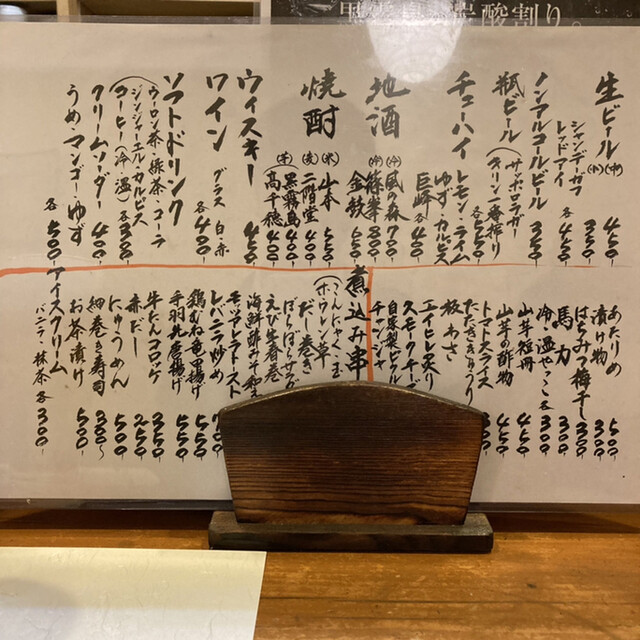 酸割り。
生ビール (中) 450
(小) 350
シャンデーガフ
レッドアイ 各450
ノンアルコールビール 350
瓶ビール サッポロラガー
(キリン一番搾り 各550
チューハイ レモン・ライム
ゆず・カルピス
巨峰 各400
地酒 (中)風の森 700
(中)篠峯 800
金鼓 650
焼酎 (米)山本 500
(麦)二階堂 400
(芋)黒霧島 400
高千穂 400
ウィスキー 450
ワイン グラス 白・赤 各400
ソフトドリンク
(ウーロン茶・緑茶・コーラ
ジンジャーエル・カルピス
コーヒー(冷・温) 各300
クリームソーダー 400
うめ・マンゴー・ゆず 各500
あたりめ 500
漬け物 300
はちみつ梅干し 300
馬力 300
冷・温やっこ 各300
山芋短冊 450
山芋の酢物 450
トマトスライス
たたききゅうり
板わさ
エイヒレ炙り
スモークチーズ
自家製ピクルス
チャンジャ
煮込み串
こんにゃく・玉
(ホウレン草
だし巻き
ぱらぱらサラダ
えび生春巻
海鮮酢みそ和え
モッツァレラトースト
レバニラ炒め
鶏むね竜田揚げ 550
手羽先唐揚げ 550
牛たんコロッケ 350
赤だし 250
にゅうめん 500
細巻き寿司 300~
お茶漬け 500
アイスクリーム
バニラ・抹茶 各300